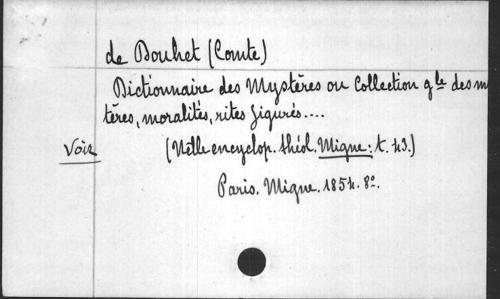 de Douhet (Comte)
Dictionnaire des Mystères ou Collection gle des m
tères, moralités, rites figurés....
Voir (Nelle encyclop. théol. Migne: t. 43.)
Paris. Migne. 1854. 8o.